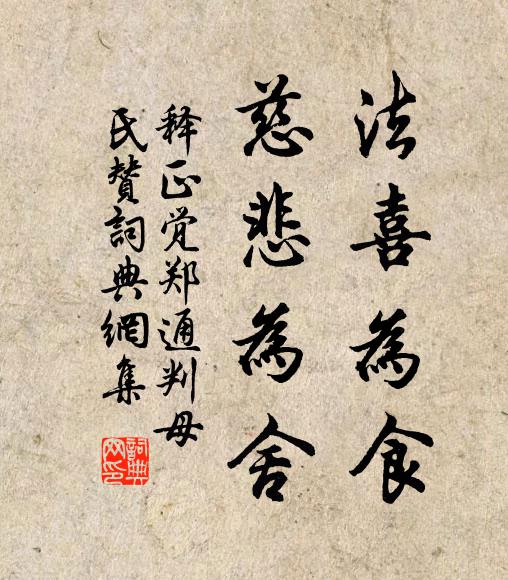 法喜為食
慈悲為舍
释正觉郑通判母
氏贊詞典網集
詞典
网印